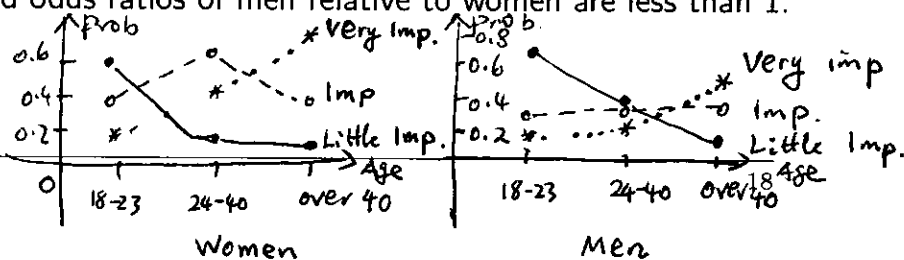 d odds ratios of men relative to women are less than 1.
Prob
Very Imp.
0.6
0.4
0.2
Imp
Little Imp.
Age
0
18-23
24-40
over 40
Women
Prob.
0.8
0.6
0.4
0.2
Very imp
Imp.
Little Imp.
Age
18-23
24-40
over 40
18
Men